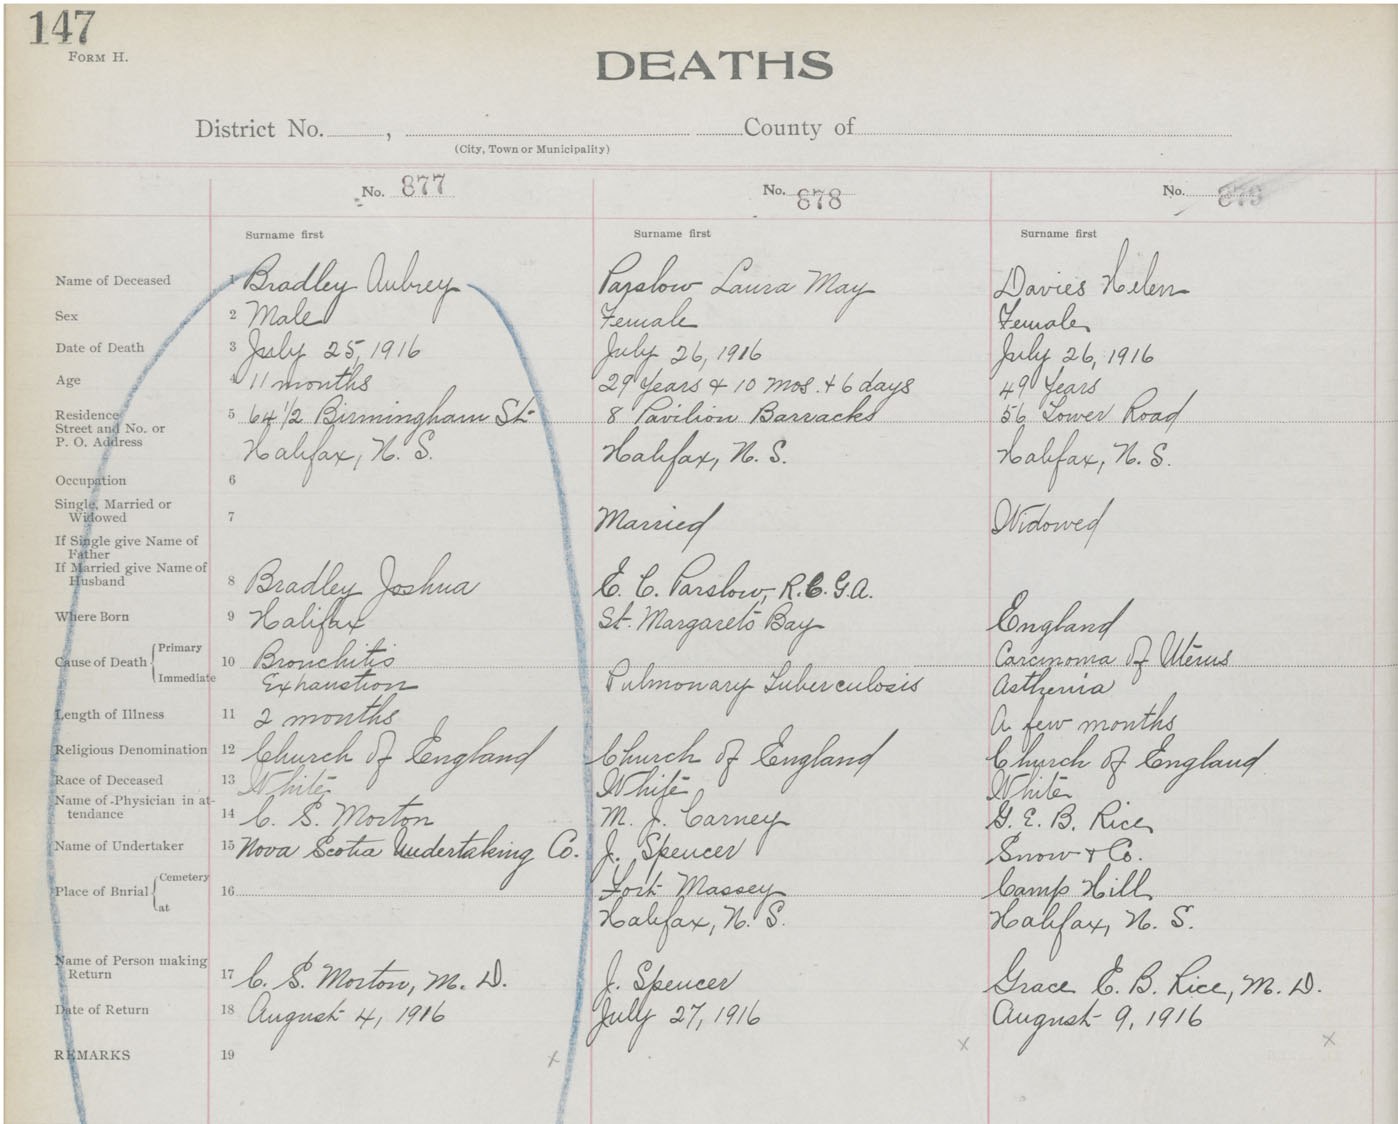 147
FORM H.
DEATHS
District No. , County of
(City, Town or Municipality)
No. 877 No. 878 No. 879
Surname first Surname first Surname first
Name of Deceased 1 Bradley Aubrey Parslow Laura May Davies Helen
Sex 2 Male Female Female
Date of Death 3 July 25, 1916 July 26, 1916 July 26, 1916
Age 4 11 months 29 Years & 10 mos. & 6 days 49 Years
Residence 5 64 1/2 Birmingham St. 8 Pavilion Barracks 56 Tower Road
Street and No. or
P. O. Address Halifax, N. S. Halifax, N. S. Halifax, N. S.
Occupation 6
Single, Married or
Widowed 7 Married Widowed
If Single give Name of
Father
If Married give Name of
Husband 8 Bradley Joshua E. C. Parslow, R.C.G.A.
Where Born 9 Halifax St. Margaret's Bay England
Cause of Death Primary 10 Bronchitis Carcinoma of Uterus
Immediate Exhaustion Pulmonary Tuberculosis Asthenia
Length of Illness 11 2 months A few months
Religious Denomination 12 Church of England Church of England Church of England
Race of Deceased 13 White White White
Name of Physician in at-
tendance 14 C. S. Morton M. J. Carney G. E. B. Rice
Name of Undertaker 15 Nova Scotia Undertaking Co. J. Spencer Snow & Co.
Place of Burial Cemetery 16 Fort Massey Camp Hill
at Halifax, N. S. Halifax, N. S.
Name of Person making
Return 17 C. S. Morton, M. D. J. Spencer Grace E. B. Rice, M. D.
Date of Return 18 August 4, 1916 July 27, 1916 August 9, 1916
REMARKS 19 x x x